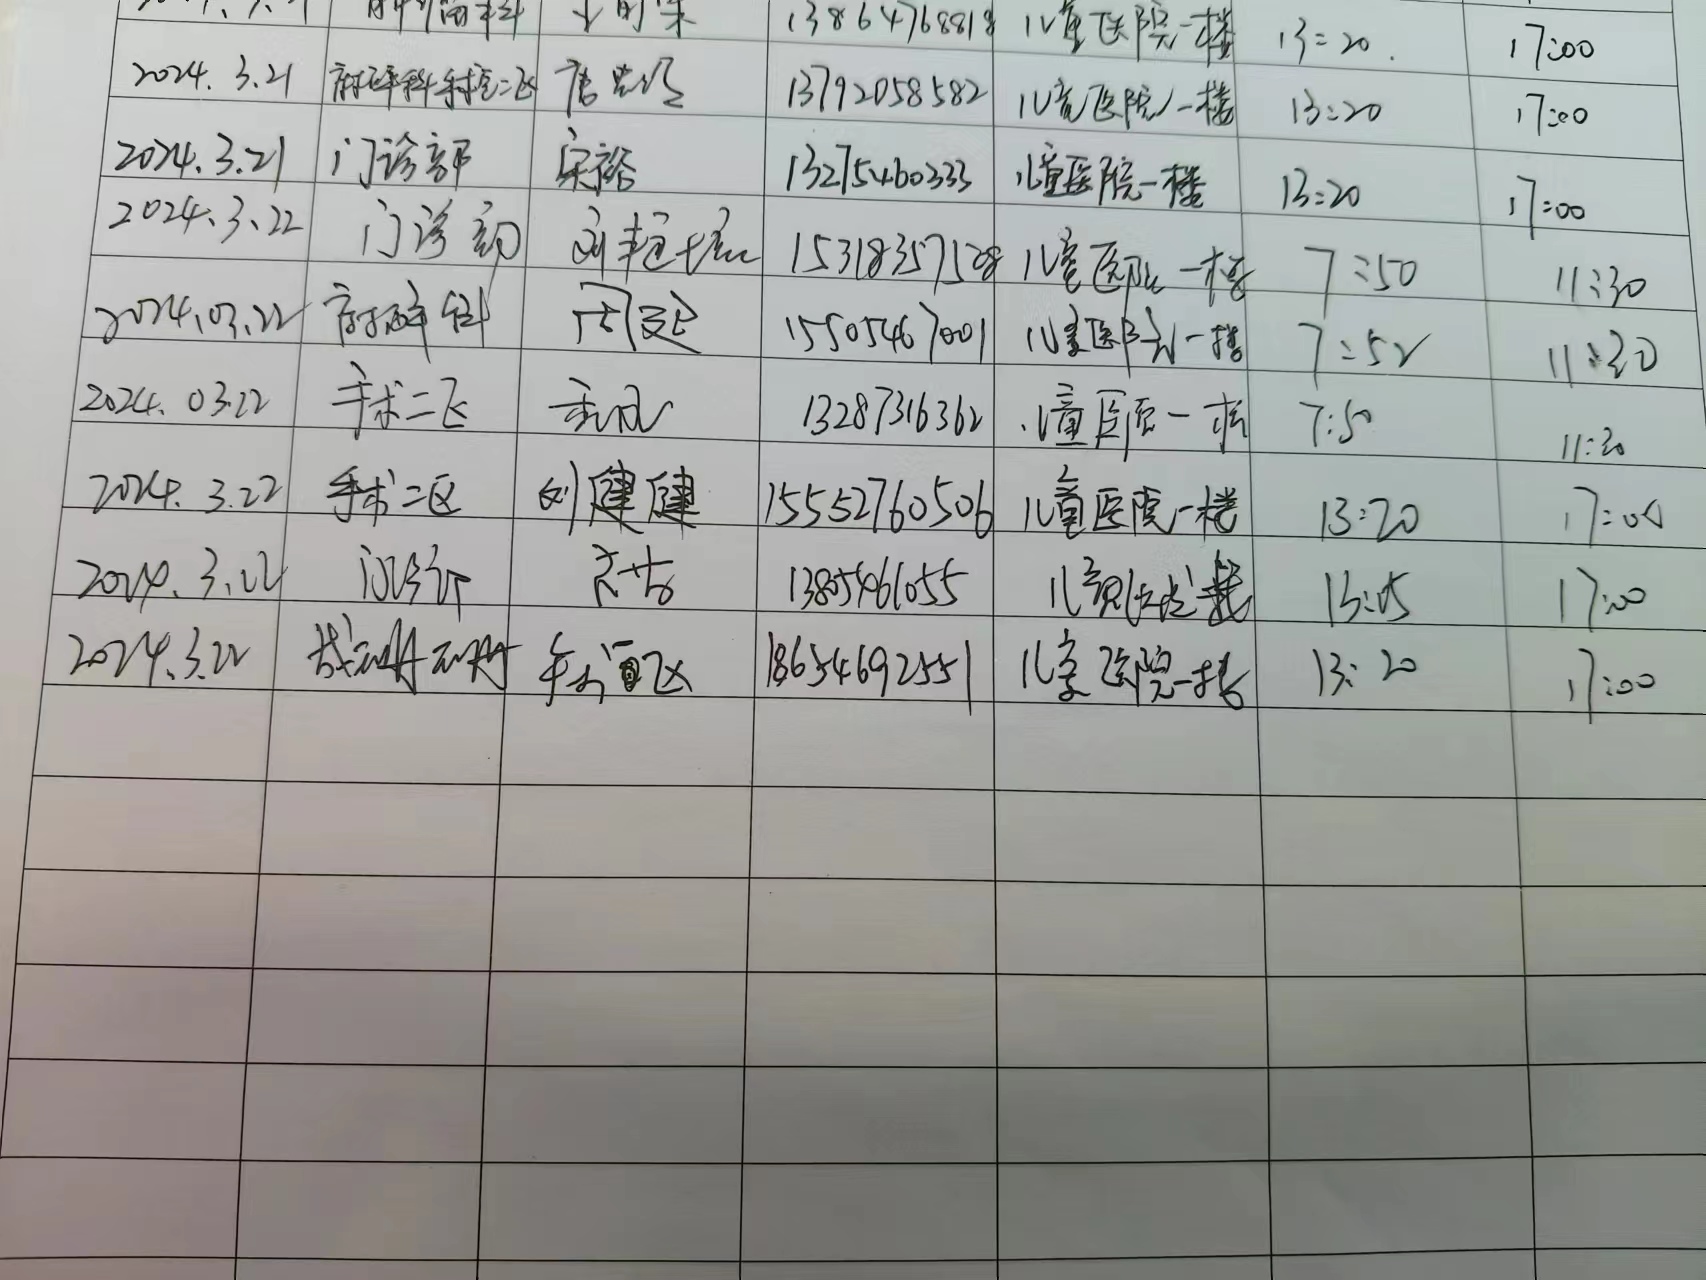 13864768818 儿童医院一楼 13:20. 17:00
2024.3.21 麻醉科手术二区 13792058582 儿童医院一楼 13:20 17:00
2024.3.21 门诊部 宋裕 13275460333 儿童医院一楼 13:20 17:00
2024.3.22 门诊部 15318357528 儿童医院一楼 7:50 11:30
2024.03.22 麻醉科 周廷 15505467001 儿童医院一楼 7:52 11:30
2024.03.22 手术二区 13287316362 儿童医院一楼 7:50 11:30
2024.3.22 手术二区 刘健健 15552760506 儿童医院一楼 13:20 17:00
2024.3.22 门诊部 13805461055 儿童医院一楼 13:05 17:00
2024.3.22 手术区 18654692551 儿童医院一楼 13:20 17:00